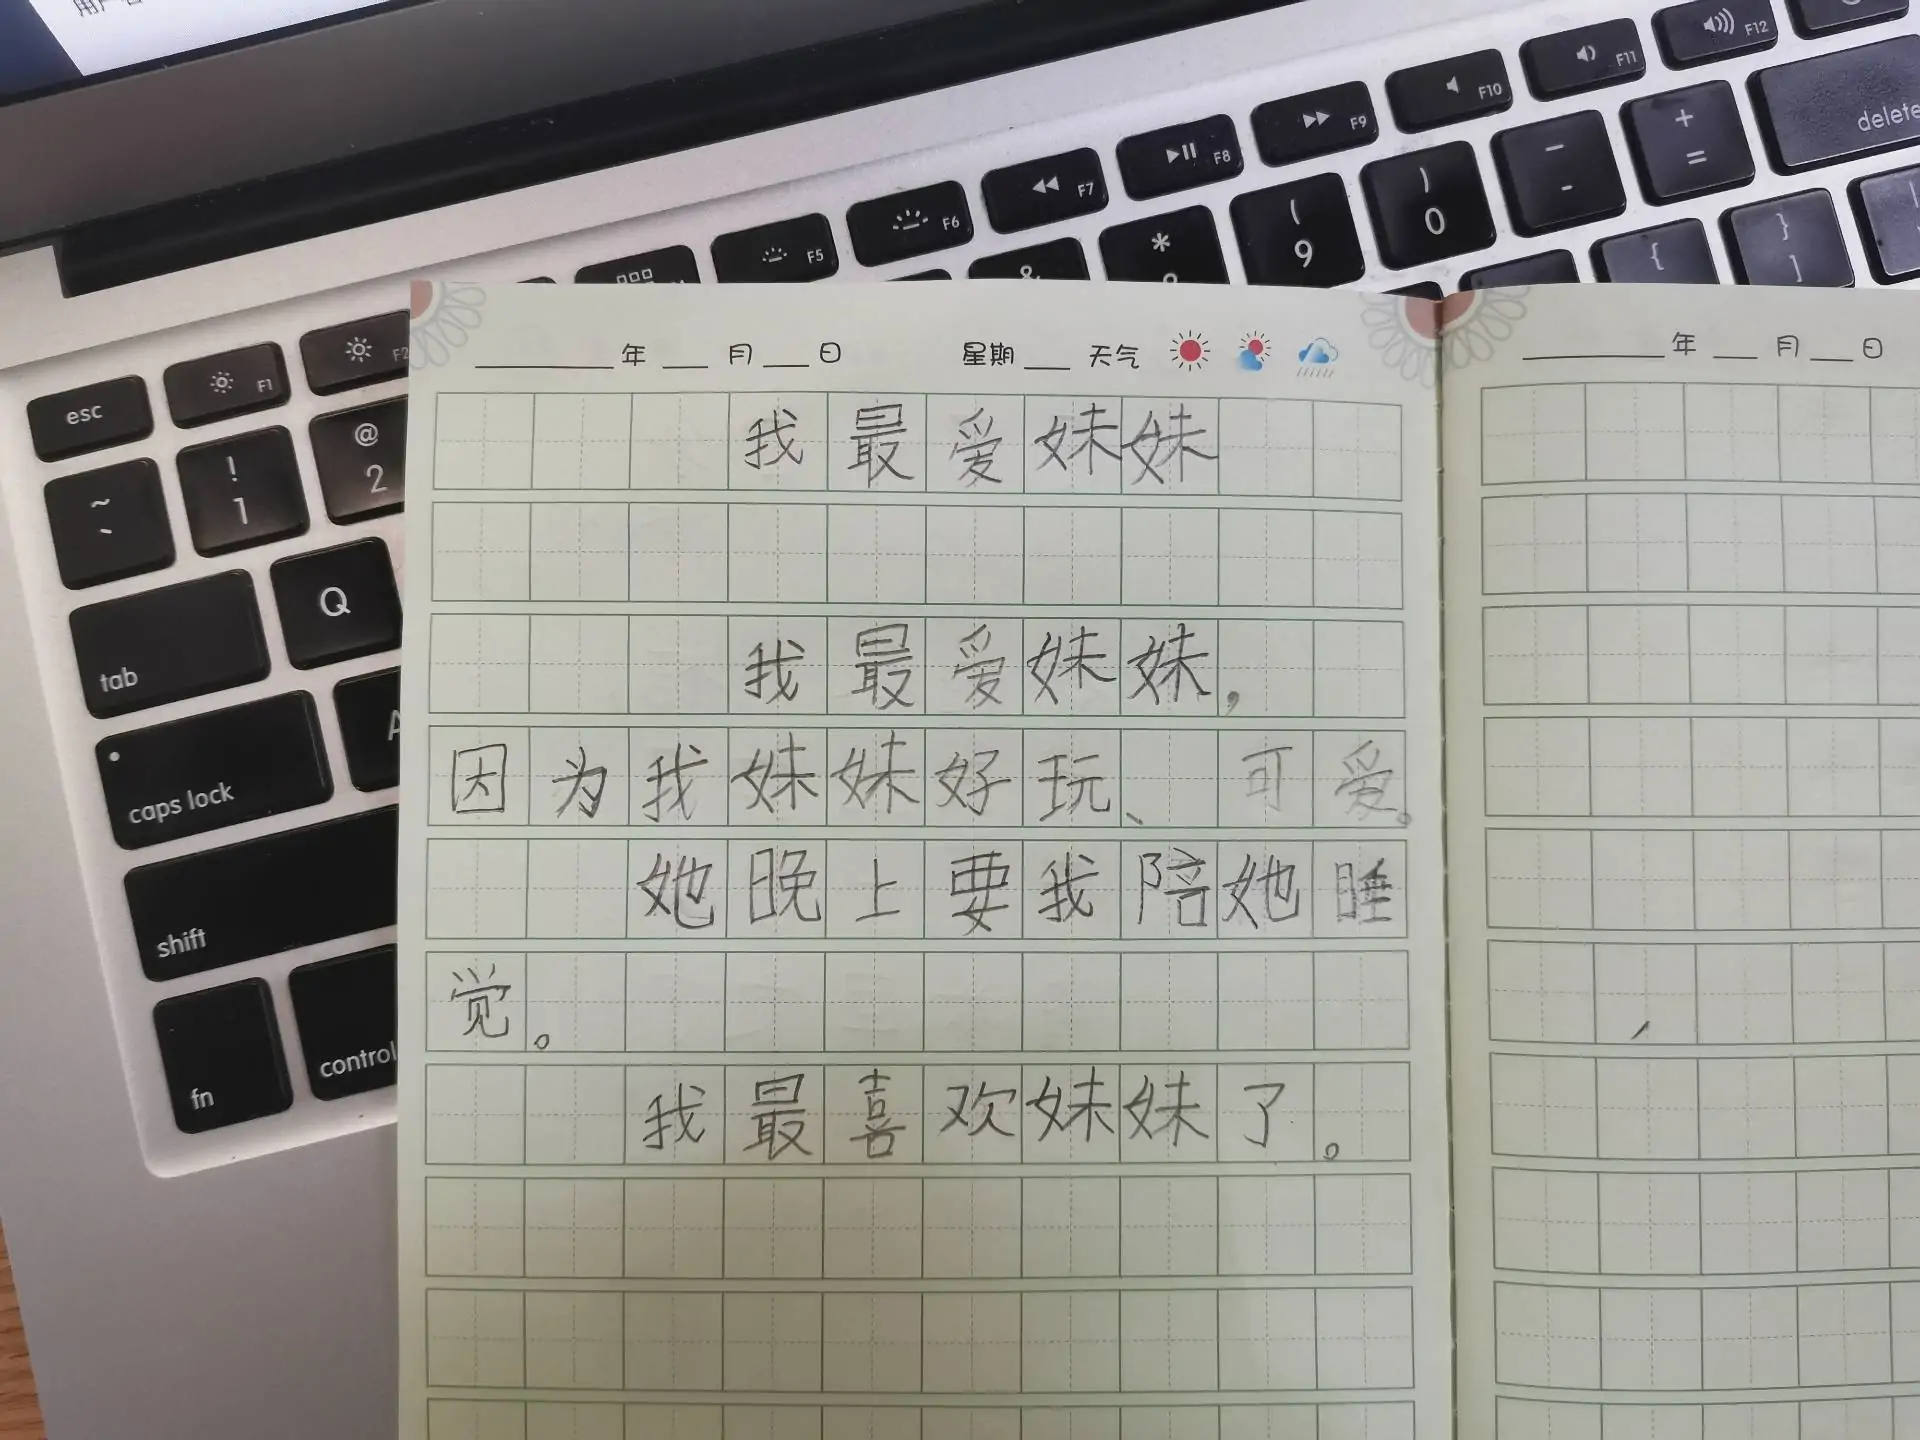 esc
F1
F2
F5
F6
F7
F8
F9
F10
F11
F12
delete
~ `
! 1
@ 2
&
*
( 9
) 0
— -
+ =
{
} ]
tab
Q
caps lock
A
shift
fn
control
年 月 日 星期 天气
年 月 日
我最爱妹妹
我最爱妹妹，
因为我妹妹好玩、可爱。
她晚上要我陪她睡
觉。
我最喜欢妹妹了。